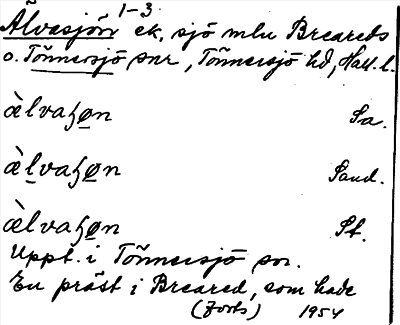 1-3
Älvasjön ek, sjö mlu Breareds
o. Tönnersjö snr, Tönnersjö hd, Hall. l.
àlvaɧøn Sa.
àlvaɧøn Sand.
àlvaɧøn St.
Uppt. i Tönnersjö sn.
En präst i Breared, som hade
(forts) 1954